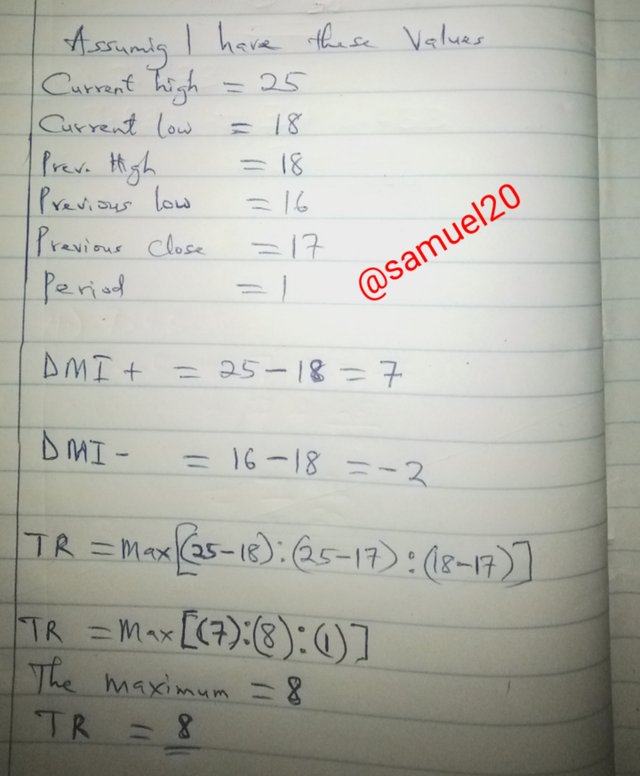 Assumig I have these Values
Current high = 25
Current low = 18
Prev. High = 18
Previous low = 16
Previous close = 17
Period = 1
@samuel20
DMI+ = 25-18 = 7
DMI- = 16-18 = -2
TR = Max[(25-18):(25-17):(18-17)]
TR = Max[(7):(8):(1)]
The maximum = 8
TR = 8